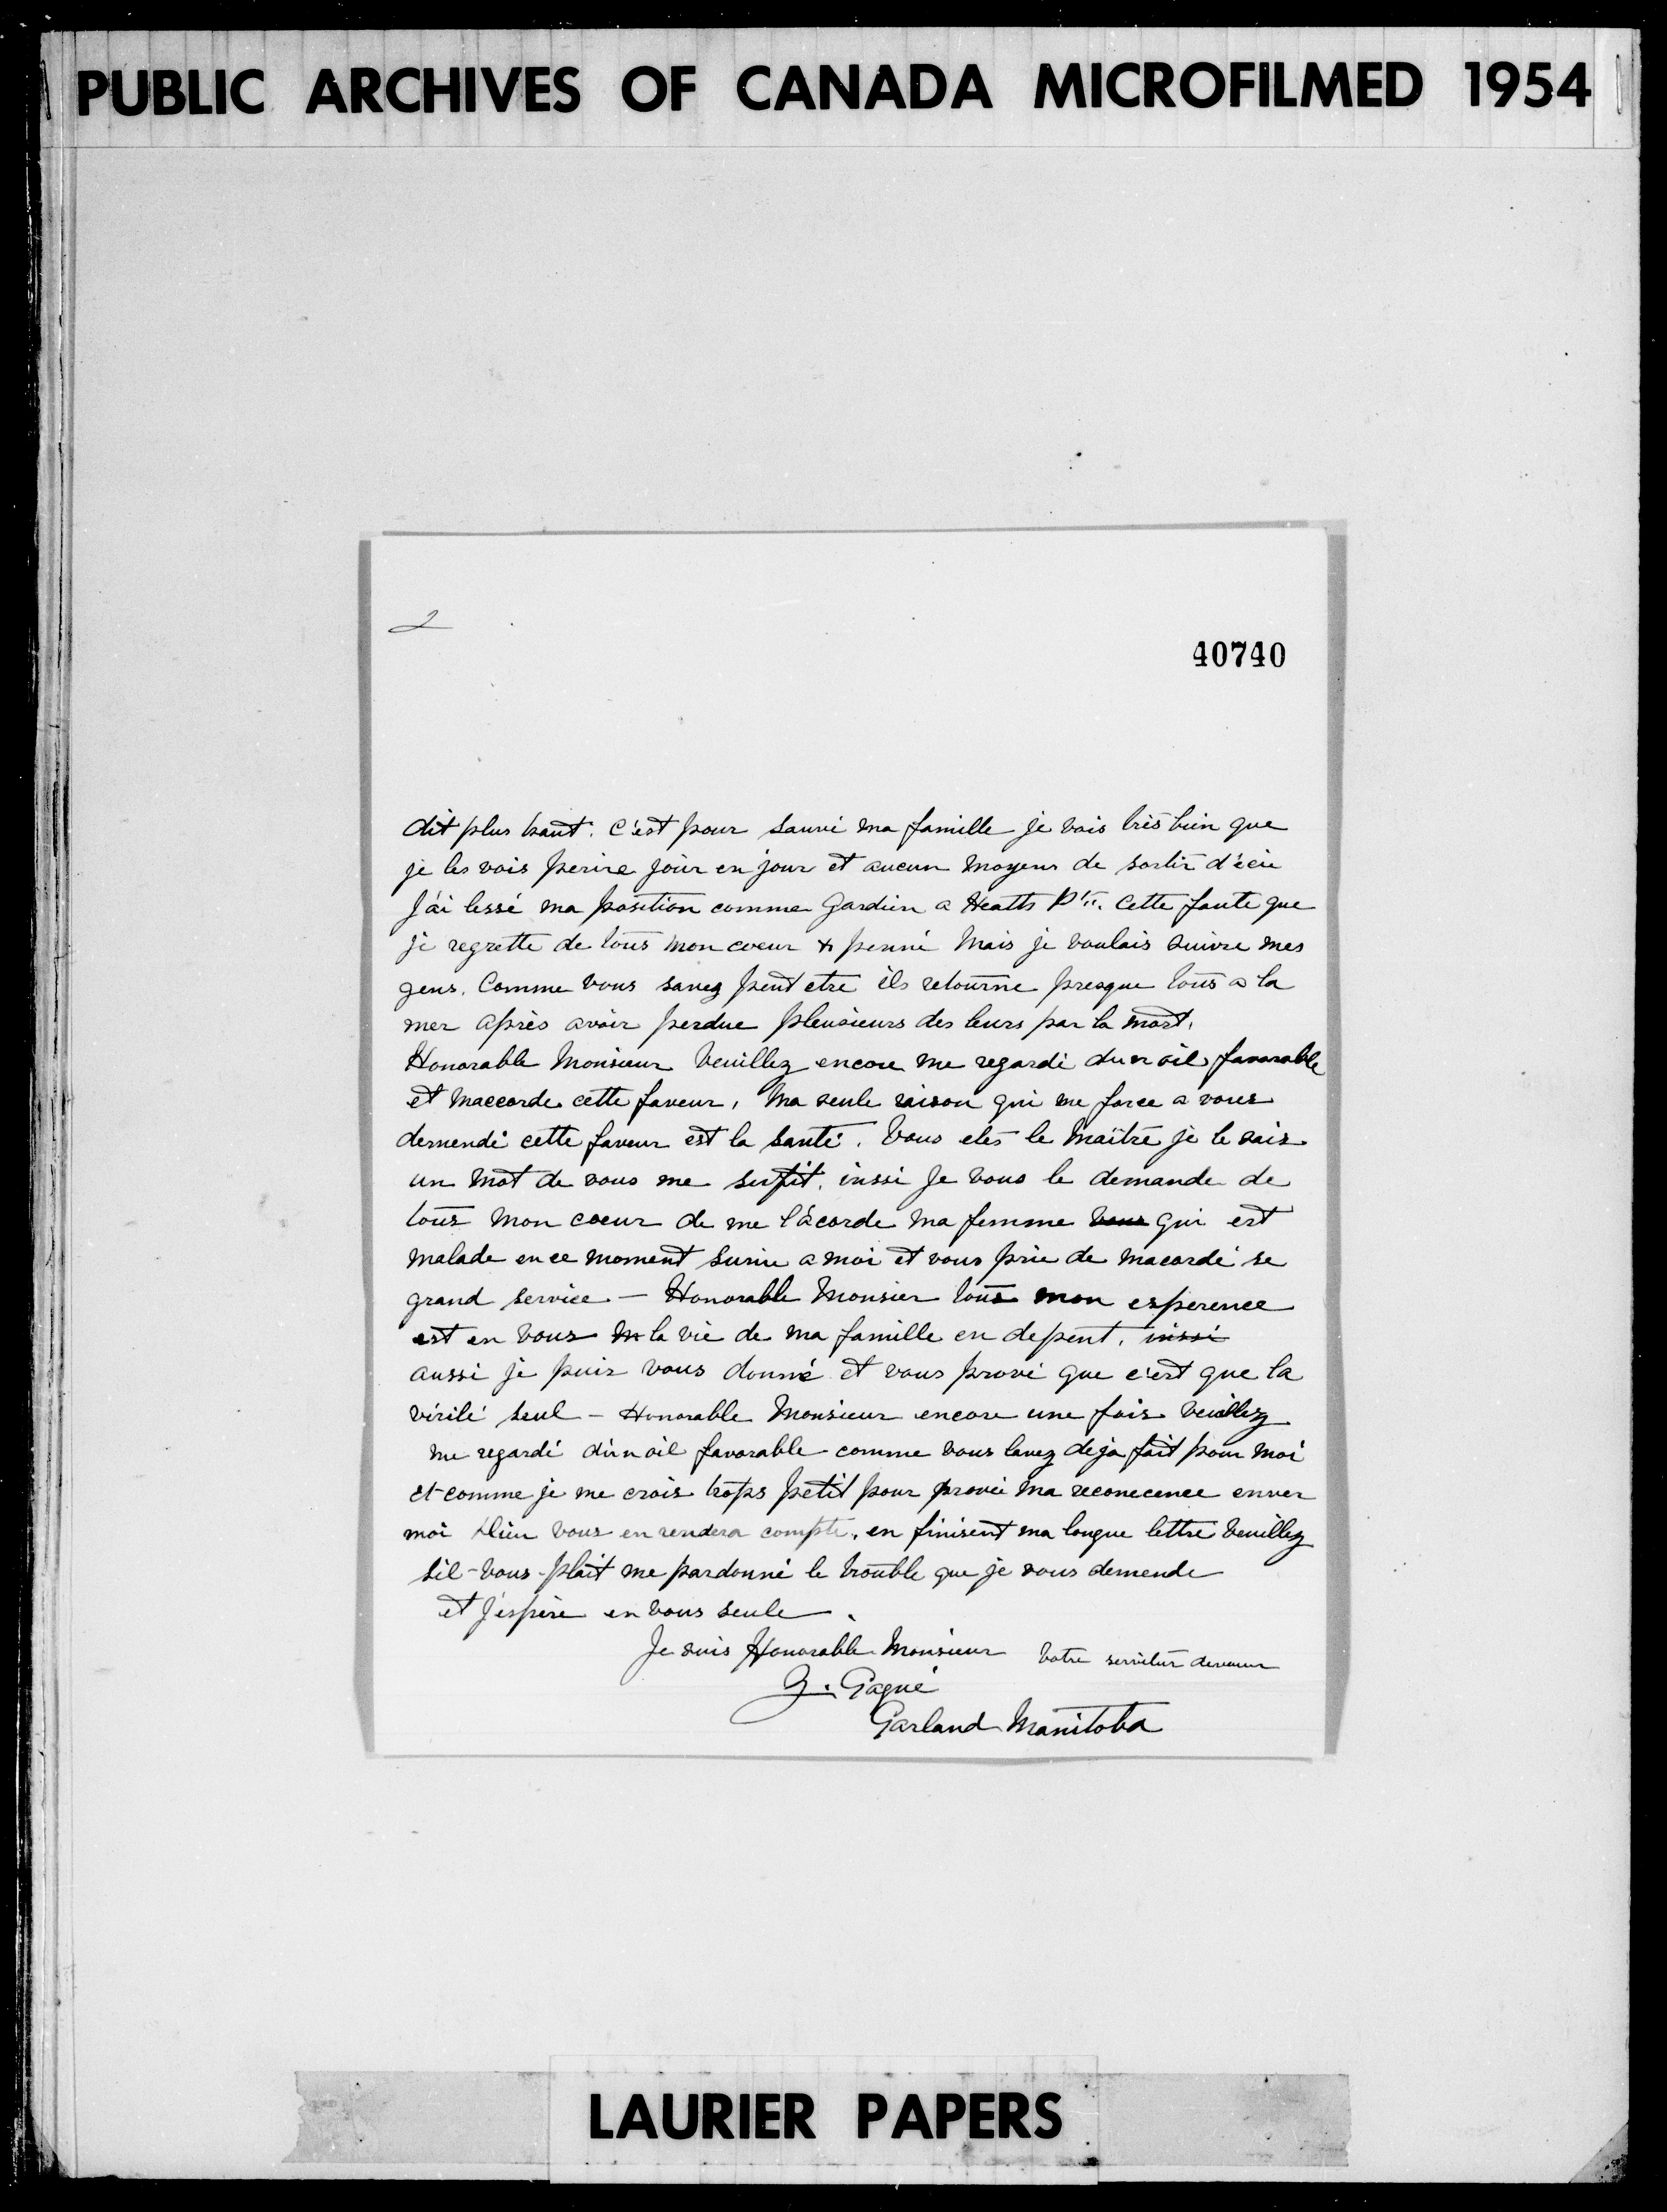 PUBLIC ARCHIVES OF CANADA MICROFILMED 1954
2
40740
dit plus haut. C'est pour sauvé ma famille je vois très bien que
je les vois perire jour en jour et aucun moyens de sortir d'écie
J'ai lessé ma position comme Gardien a Heaths Pt. Cette faute que
je regrette de tous mon coeur & penné Mais je voulais suivre mes
gens. Comme vous savez peut etre ils retourne presque tous a la
mer après avoir perdue pleusieurs des leurs par la mort.
Honorable Monsieur Veuillez encore me regardé dun oil favorable
et maccorde cette faveur, Ma seule raison qui me force a vous
demendé cette faveur est la santé. Vous etes le Maître je le sais
un mot de vous me suffit. inssi Je vous le demande de
tous mon coeur de me l'acorde ma femme vous qui est
malade en ce moment sunie a moi et vous prie de macordé se
grand service — Honorable Monsier tous mon esperence
est en vous la vie de ma famille en depent. inssi
aussi je puis vous donné et vous prové que c'est que la
vérité seul — Honorable Monsieur encore une fois Veuillez
me regardé d'un oil favorable comme vous lavez deja fait pour moi
et comme je me crois trops petit pour prouvé ma reconecence enver
moi Dieu vous en rendera compte, en finisent ma longue lettre Veuillez
sil-vous-plait me pardonné le trouble que je vous demende
et J'espère en vous seule.
Je suis Honorable Monsieur Votre serviteur
Z. Gagné
Garland Manitoba
LAURIER PAPERS